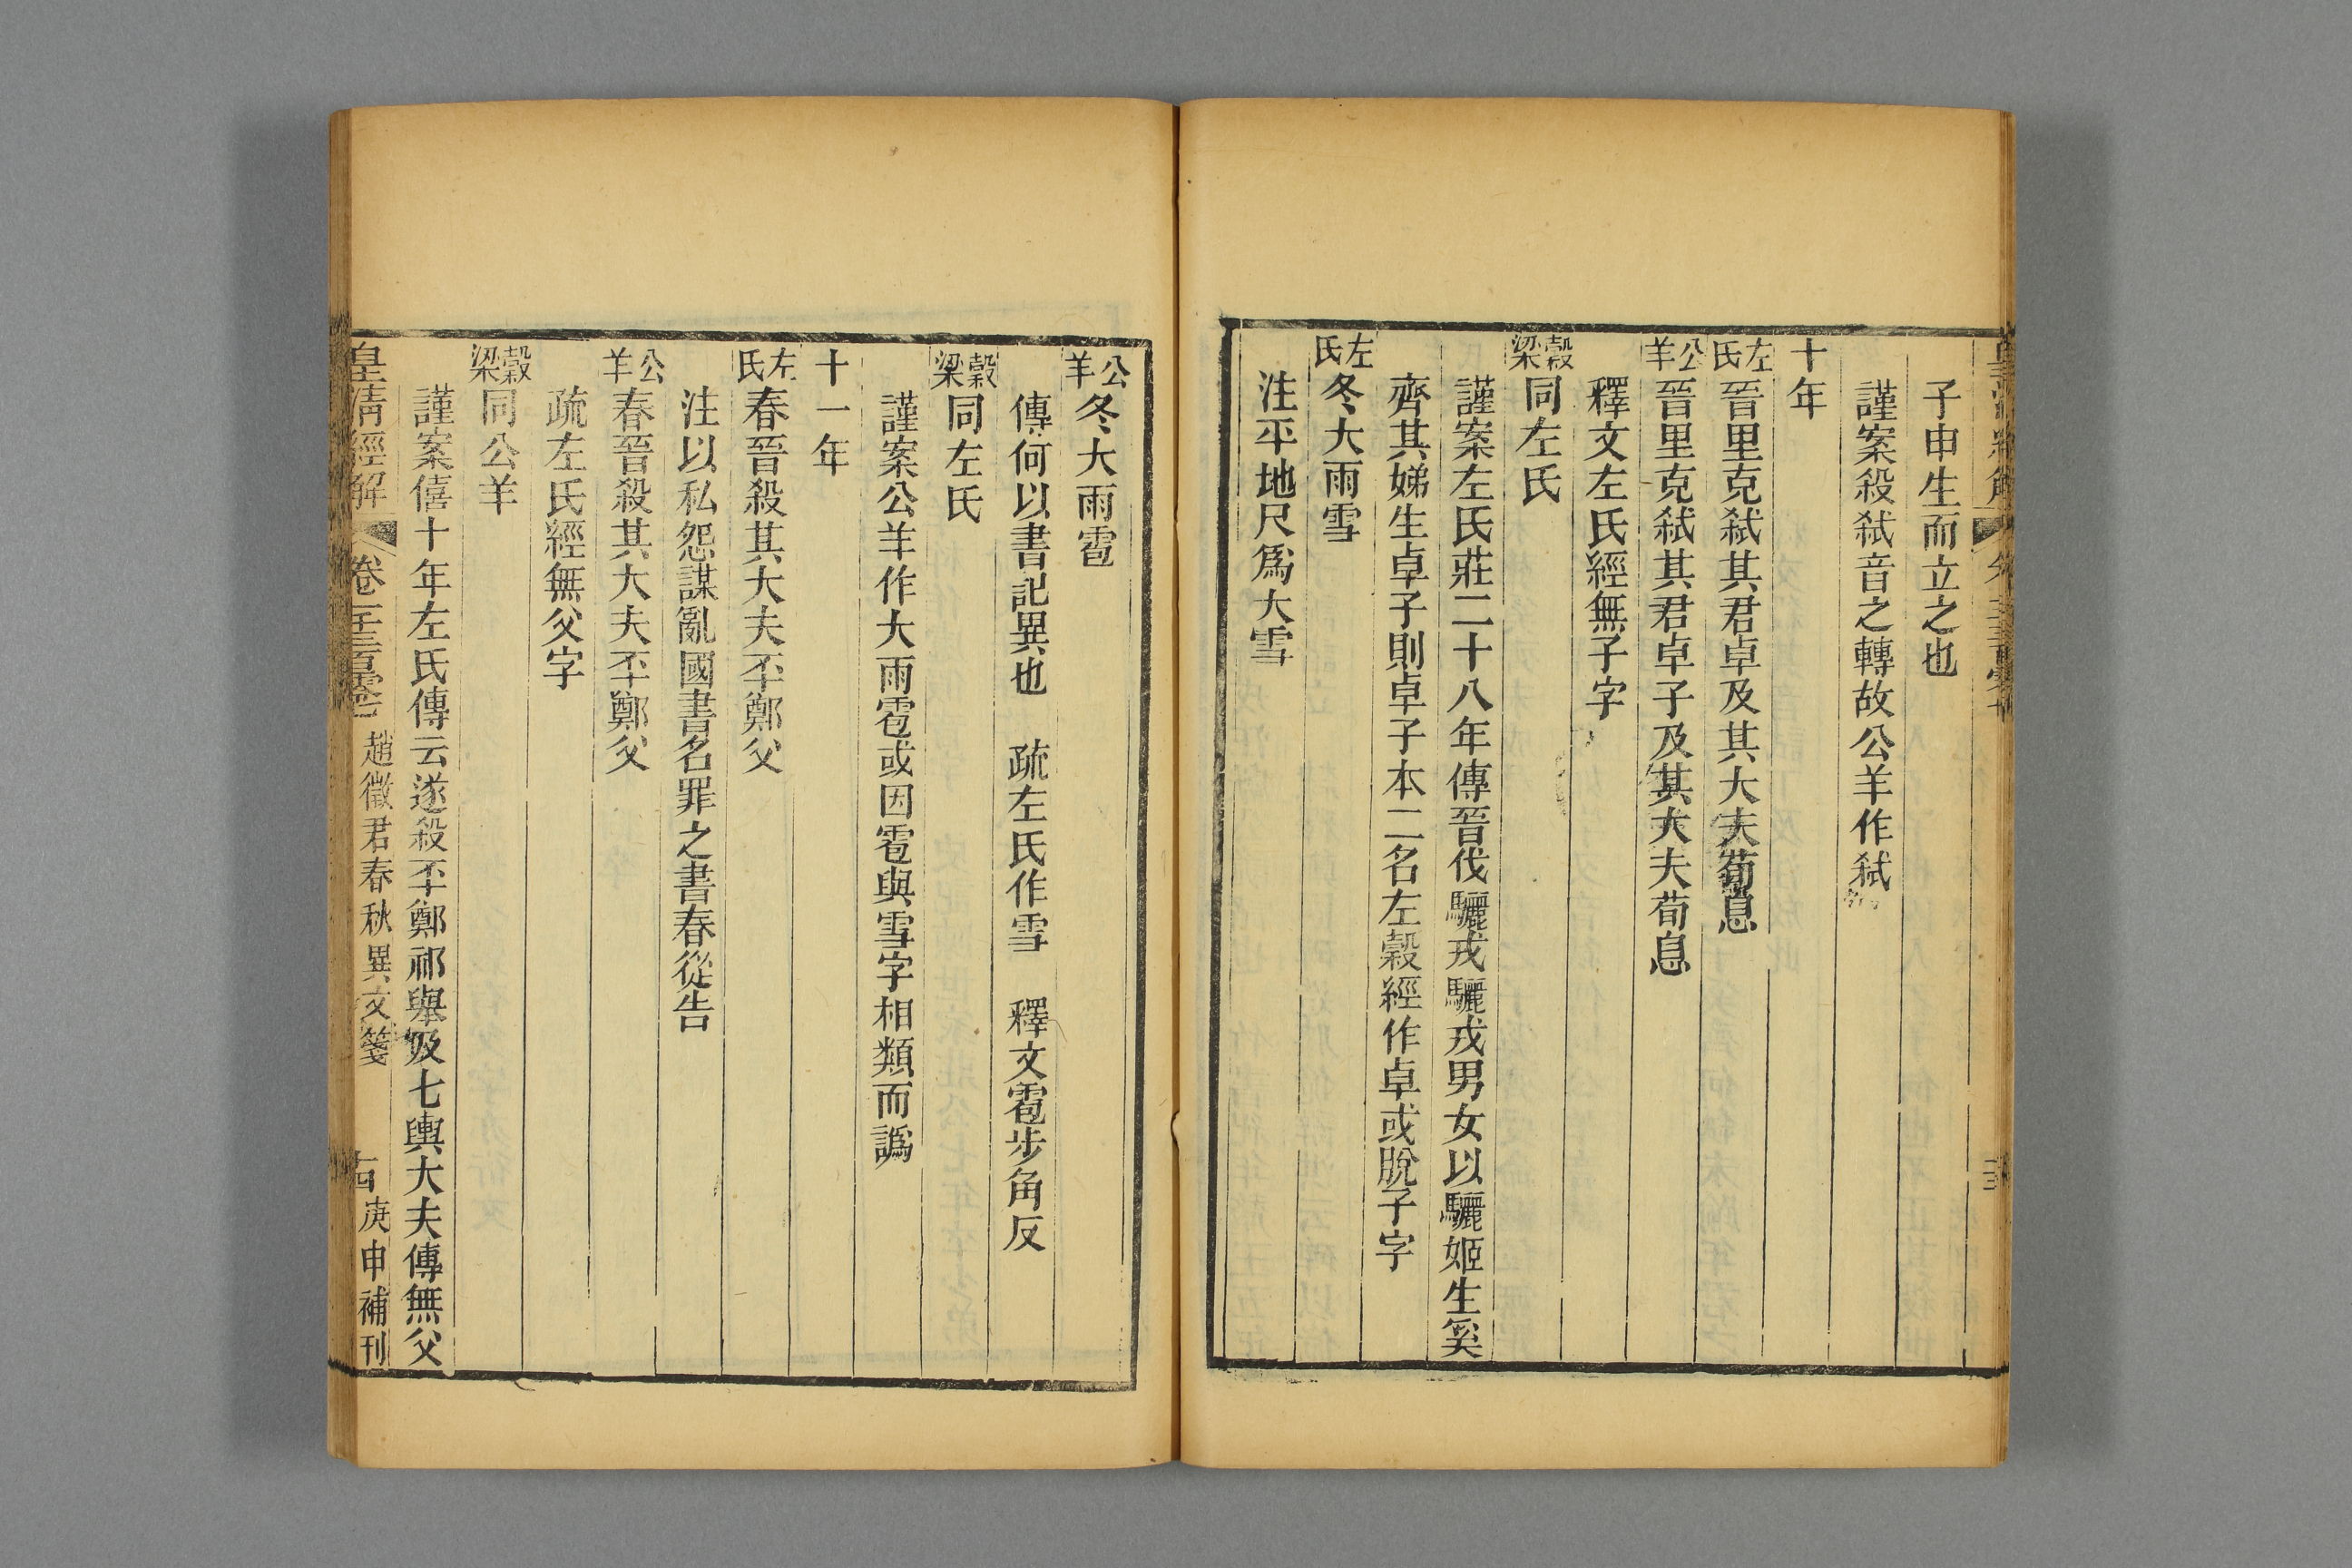 子申生而立之也
謹案殺弑音之轉故公羊作弑
十年
左氏晉里克弑其君卓及其大夫荀息
公羊晉里克弑其君卓子及其大夫荀息
釋文左氏經無子字
穀梁同左氏
謹案左氏莊二十八年傳晉伐驪戎驪戎男女以驪姬生奚
齊其娣生卓子則卓子本二名左穀經作卓或脫子字
左氏冬大雨雪
注平地尺爲大雪
公羊冬大雨雹
傳何以書記異也　疏左氏作雪　釋文雹步角反
穀梁同左氏
謹案公羊作大雨雹或因雹與雪字相類而譌
十一年
左氏春晉殺其大夫丕鄭父
注以私怨謀亂國書名罪之書春從告
公羊春晉殺其大夫丕鄭父
疏左氏經無父字
穀梁同公羊
謹案僖十年左氏傳云遂殺丕鄭祁舉及七輿大夫傳無父
皇清經解　卷　趙徵君春秋異文箋　十四　庚申補刊